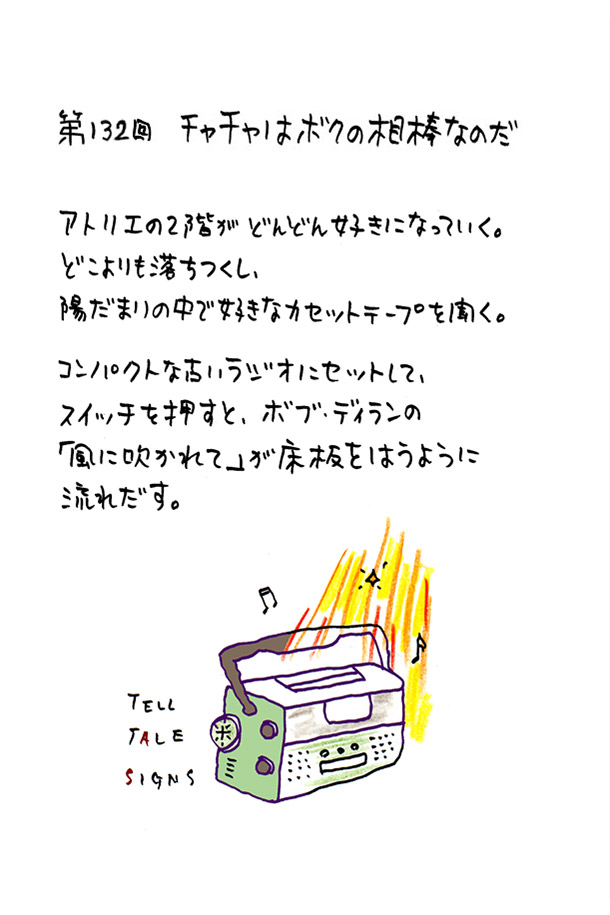 第132回 チャチャはボクの相棒なのだ
アトリエの2階がどんどん好きになっていく。
どこよりも落ちつくし、
陽だまりの中で好きなカセットテープを聞く。
コンパクトな古いラジオにセットして、
スイッチを押すと、ボブ・ディランの
「風に吹かれて」が床板をはうように
流れだす。
TELL
TALE
SIGNS